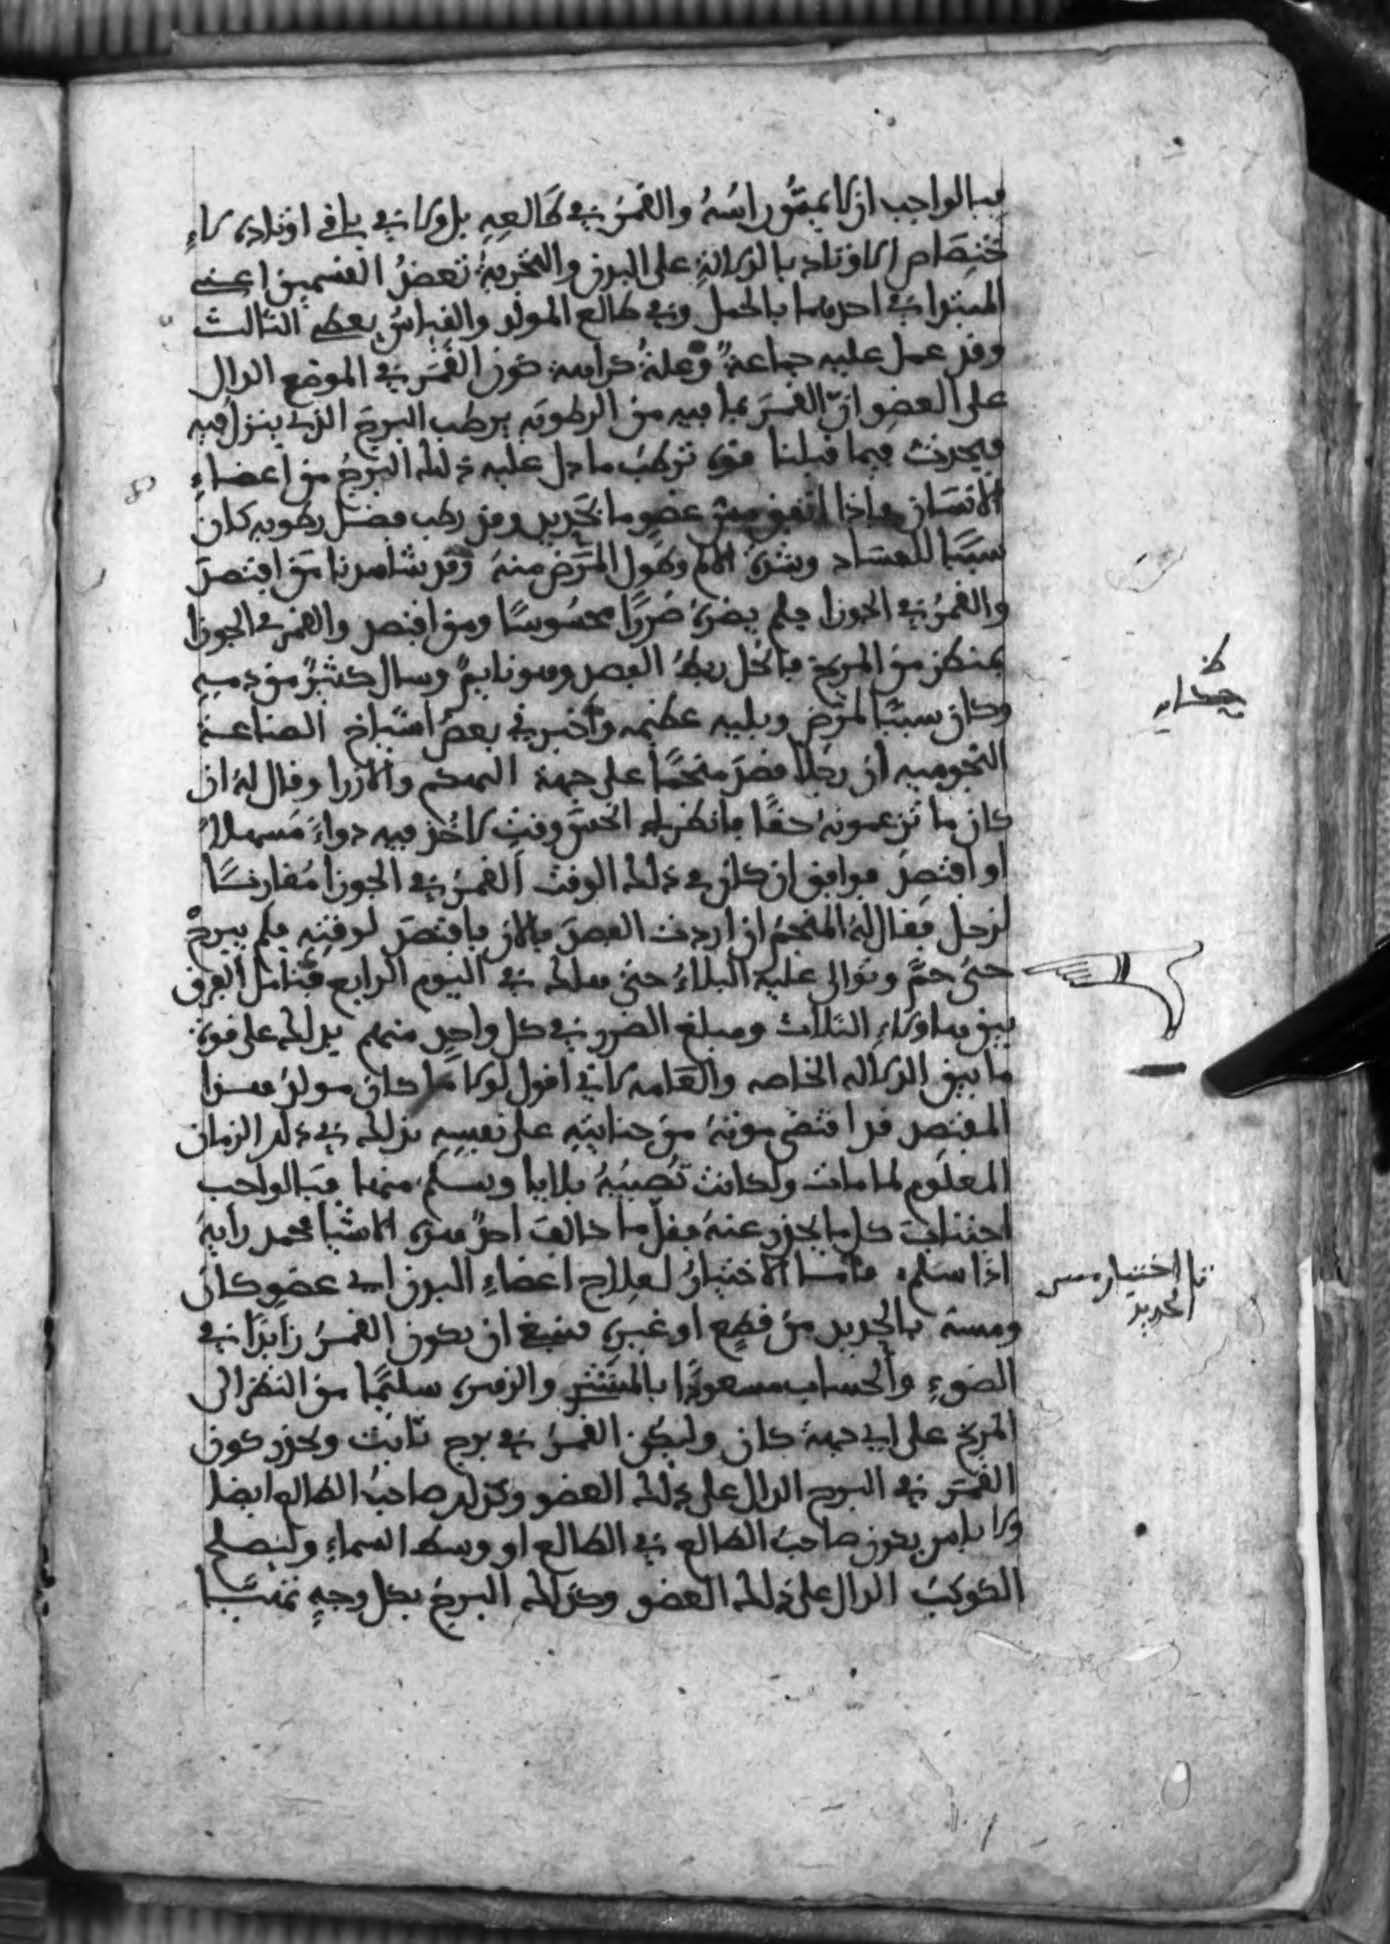 فبالواجب ان لا يمس راسه والقمر في طالعه بل ولا في باقي اوتاده لا
ختصاص الاوتاد بالدلالة على البدن والتجربة تعضد القسمين اعني
المبتدا في احدهما بالحمل وفي طالع المولد والقياس يعطي الثالث
وقد عمل عليه جماعة وعلة كراهية كون القمر في الموضع الدال
على العضو ان القمر بما فيه من الرطوبة يرطب البرج الذي ينزل فيه
فيحدث فيما قبلنا قوة ترطب ما دل عليه ذلك البرج من اعضاء
الانسان فاذا اتفق مس عضو ما بحديد وقد رطب فضل رطوبة كان
سببا للفساد وشدة الالم وطول المرض منه وقد شاهدنا من افتصد
والقمر في الجوزا فلم يضره ضررا محسوسا ومن افتصد والقمر في الجوزا
بمنظر من المريخ فانحل ربط الفصد وهو نايم وسال كثير من دمه
وكان سببا لمرض وبلية عظيمة واخبرني بعض اشياخ الصناعة
النجومية ان رجلا قصد منجما على جهة التهكم والازرا وقال له ان
كان ما تزعمونه حقا فانظر لي اخس وقت لاخذ فيه دواء مسهلا
او افتصد فوافق ان كان في ذلك الوقت القمر في الجوزا مقارنا
لزحل فقال له المنجم ان اردت الفصد فالان فافتصد لوقته فلم يبرح
حتى حم وتوالى عليه البلاء حتى هلك في اليوم الرابع فتامل الفرق
بين هاولاء الثلاث ومبلغ الضرر في كل واحد منهم يدلك على قوة
ما بين الدلالة الخاصة والعامة لاني اقول لولا ما كان مولد هذا
المفتصد قد اقتضى موته من جنايته على نفسه بذلك في ذلك الزمان
المعلوم لما مات ولكانت تصيبه بلايا ويسلم منها فبالواجب
اجتناب كل ما يحذر عنه فقل ما خالف احد هذه الاشيا فحمد رايه
اذا سلم فاما الاختيار لعلاج اعضاء البدن اي عضو كان
ومسه بالحديد من قطع او غيره فينبغي ان يكون القمر زايدا في
الضوء والحساب مسعودا بالمشتري والزهرة سليما من النظر الى
المريخ على اي جهة كان وليكن القمر في برج ثابت وتحذر كون
القمر في البرج الدال على ذلك العضو وكذلك صاحب الطالع ايضا
ولا باس بكون صاحب الطالع في الطالع او وسط السماء ولتصلح
الكوكب الدال على ذلك العضو وكذلك البرج بكل وجه
حكاية
الاختيار لمس
الحديد